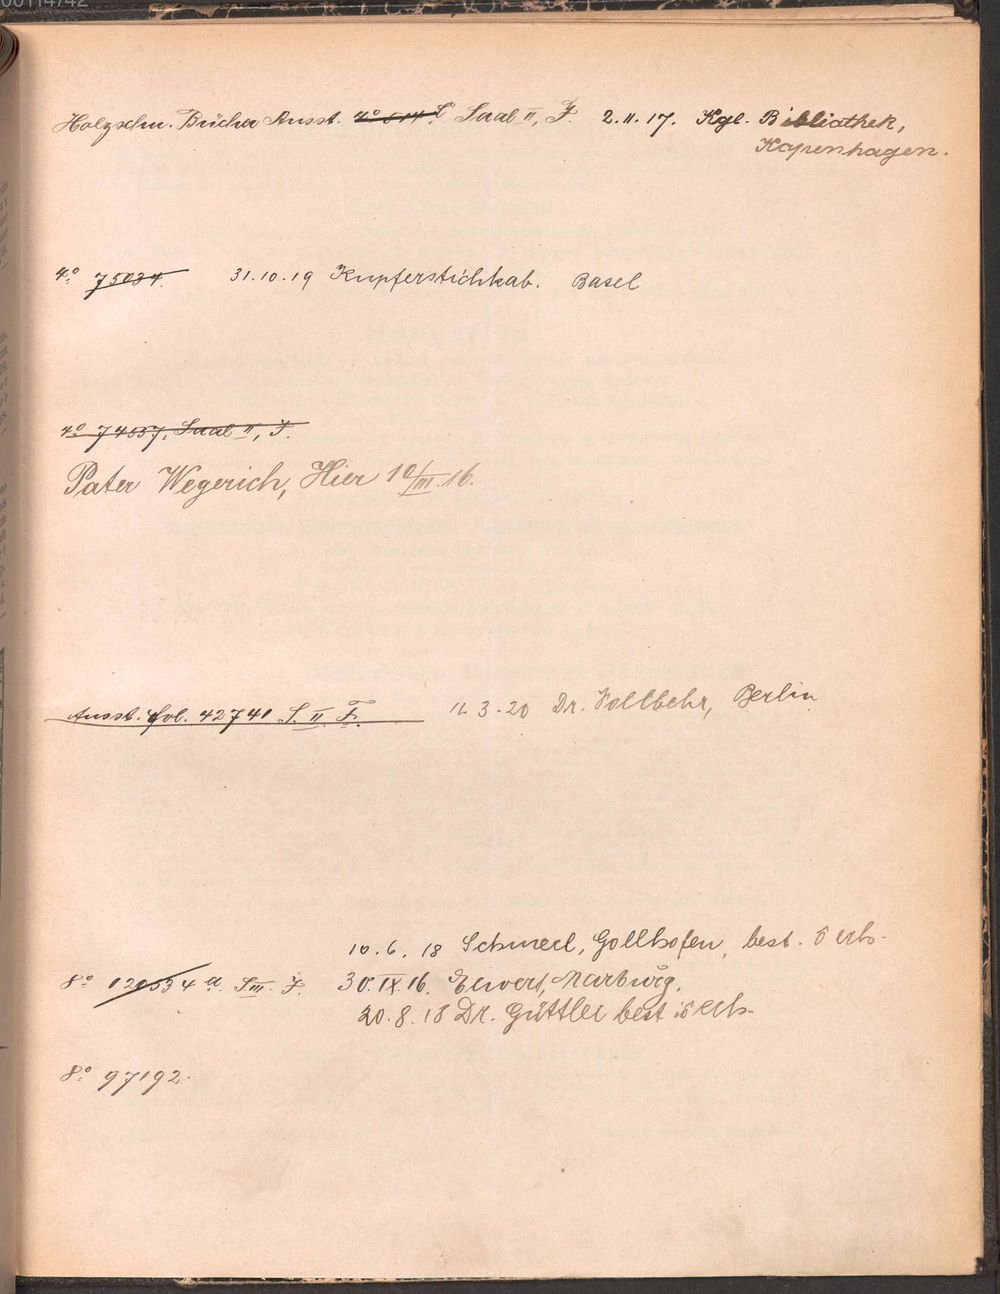 00114742
Holzschn. Bücher Ausst. Saal II, F. 2.11.17. Kgl. Bibliothek,
Kopenhagen.
4° 75034. 31.10.19 Kupferstichkab. Basel
4° 74557, Saal II, F.
Pater Wegerich, Hier 10/III.16.
Ausst. fol. 42741 S. II F. 11.3-20 Dr. Vollbehr, Berlin
10.6.18 Schmeel, Gollhofen, best.
8° 120534 a. S III. F. 30.IX.16. Elwert, Marburg.
20.8.18 Dr. Güttler best
8° 97192.